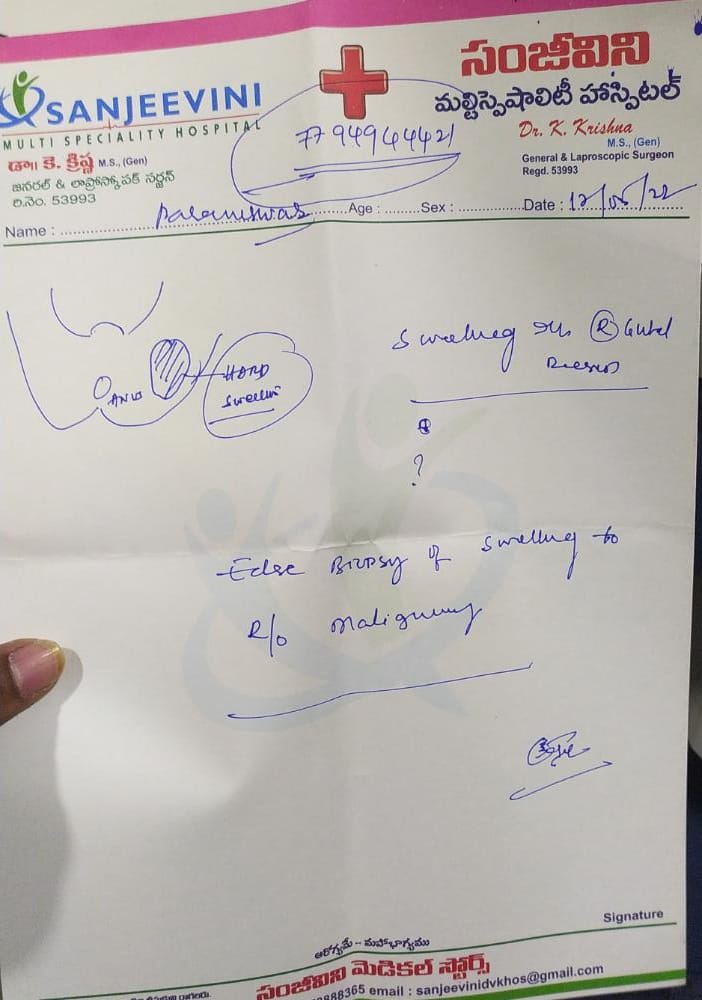 SANJEEVINI
MULTI SPECIALITY HOSPITAL
డా॥ కె. క్రిష్ణ M.S., (Gen)
జనరల్ & లాప్రోస్కోపక్ సర్జన్
రి.నెం. 53993
7794944421
సంజీవిని
మల్టిస్పెషాలిటీ హాస్పిటల్
Dr. K. Krishna
M.S., (Gen)
General & Laproscopic Surgeon
Regd. 53993
Name : Parameswar Age : Sex : Date : 12/05/22
Swelling R
ANUS
HARD
Swelling
?
Edge Biopsy of Swelling to
R/o malignancy
Signature
ఆరోగ్యమే - మహాభాగ్యము
సంజీవిని మెడికల్ స్టోర్స్
888365 email : sanjeevinidvkhos@gmail.com